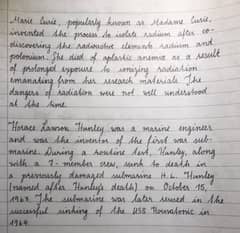 Marie Curie, popularly known as Madame Curie,
invented the process to isolate radium after co-
discovering the radioactive elements radium and
polonium. She died of aplastic anemia as a result
of prolonged exposure to ionizing radiation
emanating from her research materials. The
dangers of radiation were not well understood
at the time.
Horace Lawson Hunley was a marine engineer
and was the inventor of the first war sub-
marine. During a routine test, Hunley, along
with a 7-member crew, sunk to death in
a previously damaged submarine H. L. Hunley
(named after Hunley's death) on October 15,
1963. The submarine was later reused in the
successful sinking of the USS Housatonic in
1964.